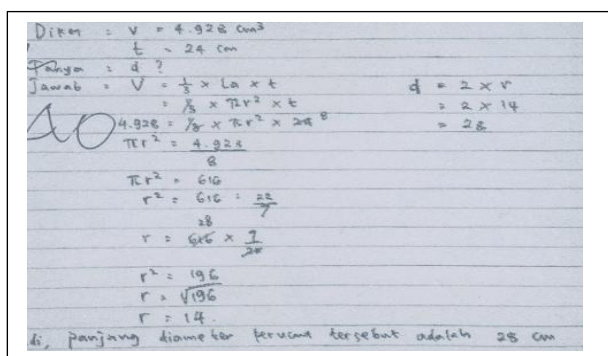 Diket : V = 4.928 cm³
t = 24 cm
Tanya : d ?
Jawab : V = 1/3 × La × t
= 1/3 × πr² × t
4.928 = 1/3 × πr² × 24 8
πr² = 4.928/8
πr² = 616
r² = 616 : 22/7
r = 616 28 × 7/22
r² = 196
r = √196
r = 14.
d = 2 × r
= 2 × 14
= 28
di, panjang diameter kerucut tersebut adalah 28 cm